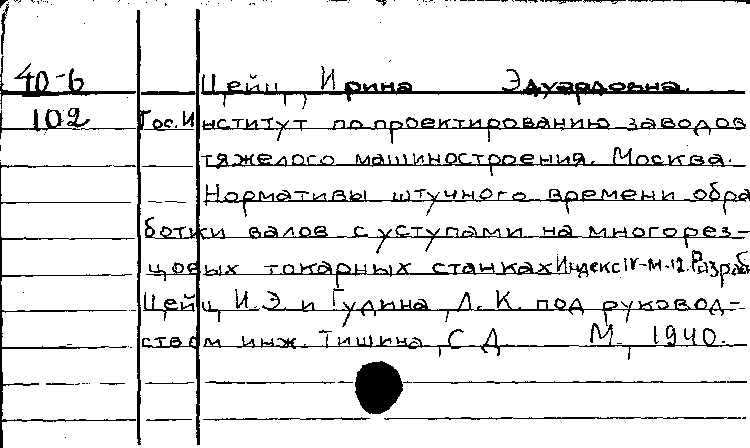 40-6 Цейц, Ирина Эдуардовна.
102 Гос. Институт по проектированию заводов
тяжелого машиностроения. Москва.
Нормативы штучного времени обра
ботки валов с уступами на многорез-
цовых токарных станках Индекс IV-М-12. Разраб
Цейц, И.Э. и Гудина, Л. К. под руковод-
ством инж. Тишина, С Д М., 1940.